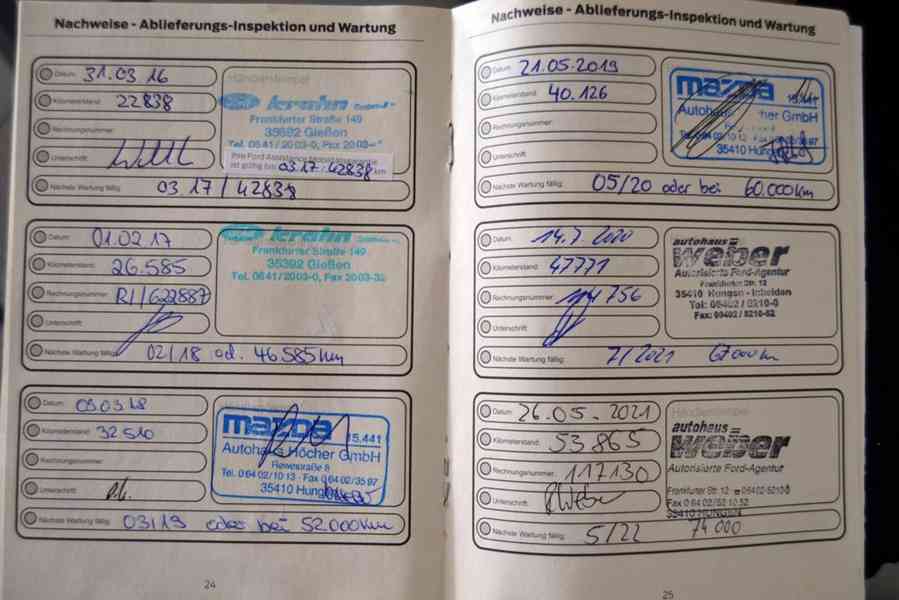 Nachweise - Ablieferungs-Inspektion und Wartung
Datum: 31.03 16
Kilometerstand: 22838
Rechnungsnummer:
Unterschrift:
Händlerstempel
krahn
Frankfurter Straße 149
35392 Gießen
Tel. 0641/2003-0, Fax 2003-
Ihre Ford Assistance Mobilitätsgarantie
ist gültig bis 03.17 / 42838 km
Nächste Wartung fällig: 03 17 / 42838
Datum: 01.02.17
Kilometerstand: 26.585
Rechnungsnummer: R1/622887
Unterschrift:
krahn
Frankfurter Straße 149
35392 Gießen
Tel. 0641/2003-0, Fax 2003-32
Nächste Wartung fällig: 02/18 od. 46585km
Datum: 09.03.18
Kilometerstand: 32510
Rechnungsnummer:
Unterschrift:
mazda
15.441
Autohaus Höcher GmbH
Tel. 0 64 02/10 13 · Fax 0 64 02/35 97
35410 Hungen
Nächste Wartung fällig: 03/19 oder bei 52.000km
24
Nachweise - Ablieferungs-Inspektion und Wartung
Datum: 21.05.2019
Kilometerstand: 40.126
Rechnungsnummer:
Unterschrift:
mazda
15.441
Autohaus cher GmbH
Tel. 0 64 02/10 13 · Fax 0 64 02/35 97
35410 Hungen
Nächste Wartung fällig: 05/20 oder bei 60.000km
Datum: 14.7 2020
Kilometerstand: 47771
Rechnungsnummer: 114756
Unterschrift:
autohaus
weber
Autorisierte Ford-Agentur
Frankfurter Str. 12
35410 Hungen - Inheiden
Tel: 06402 / 5210-0
Fax: 06402 / 5210-52
Nächste Wartung fällig: 7/2021 67000km
Datum: 26.05.2021
Kilometerstand: 53865
Rechnungsnummer: 117130
Unterschrift:
Händlerstempel
autohaus
weber
Autorisierte Ford-Agentur
Frankfurter Str. 12 06402-52100
Fax 0 64 02/52 10 52
35410 HUNGEN
Nächste Wartung fällig: 5/22 74000
25